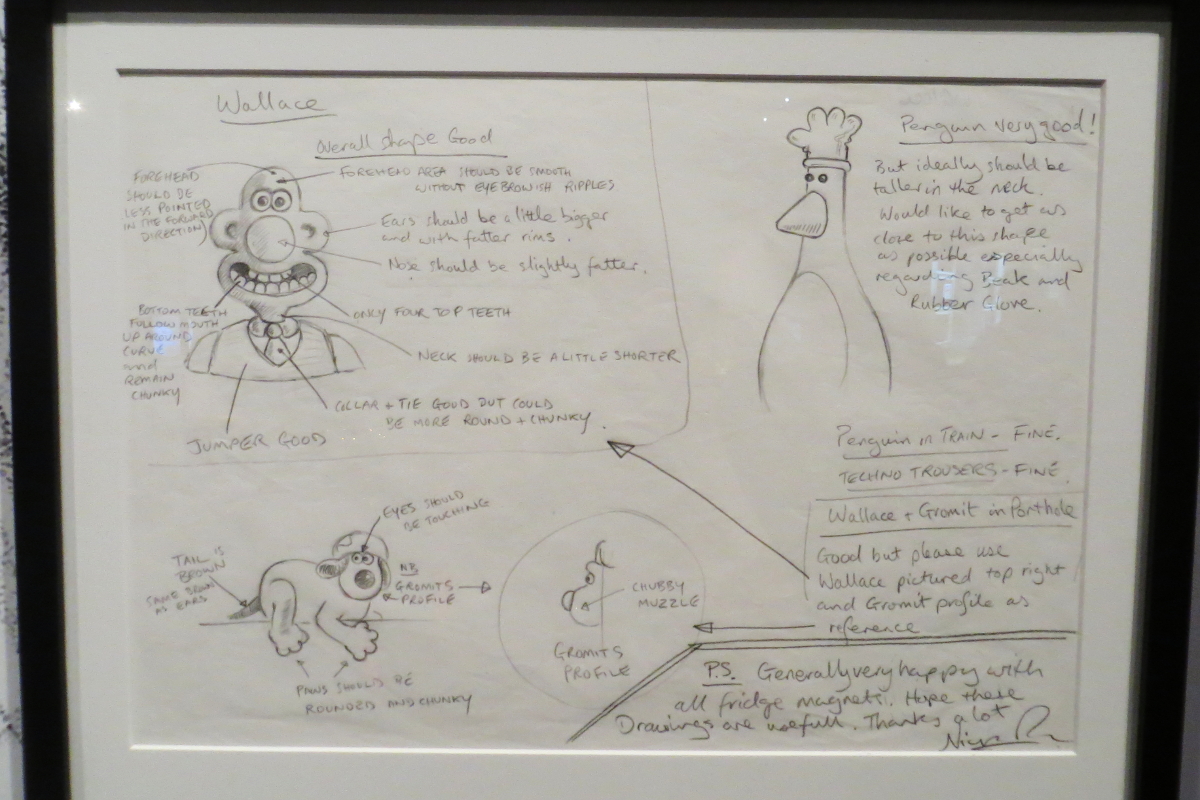 Wallace
Overall shape Good
FOREHEAD
SHOULD BE
LESS POINTED
IN THE FORWARD
DIRECTION)
FOREHEAD AREA SHOULD BE SMOOTH
WITHOUT EYEBROWISH RIPPLES
Ears should be a little bigger
and with fatter rims.
Nose should be slightly fatter.
BOTTOM TEETH
FOLLOW MOUTH
UP AROUND
CURVE
and
REMAIN
CHUNKY
ONLY FOUR TOP TEETH
NECK SHOULD BE A LITTLE SHORTER
COLLAR + TIE GOOD BUT COULD
BE MORE ROUND + CHUNKY.
JUMPER GOOD
Penguin very good!
But ideally should be
taller in the neck.
Would like to get as
close to this shape
as possible especially
regarding Beak and
Rubber Glove.
Penguin in TRAIN - FINE.
TECHNO TROUSERS - FINE.
Wallace + Gromit in Porthole
Good but please use
Wallace pictured top right
and Gromit profile as
reference
EYES SHOULD
BE TOUCHING
TAIL IS
BROWN
SAME BROWN
AS EARS
NB
GROMITS
PROFILE
PAWS SHOULD BE
ROUNDED AND CHUNKY
CHUBBY
MUZZLE
GROMITS
PROFILE
P.S. Generally very happy with
all fridge magnets. Hope these
Drawings are usefull. Thanks a lot